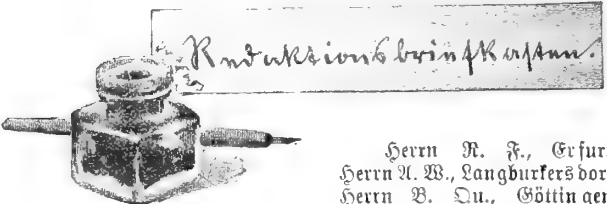 Redaktionsbriefkasten.
Herrn R. F., Erfur
Herrn A. W., Langburkersdor
Herrn B. Qu., Göttinger